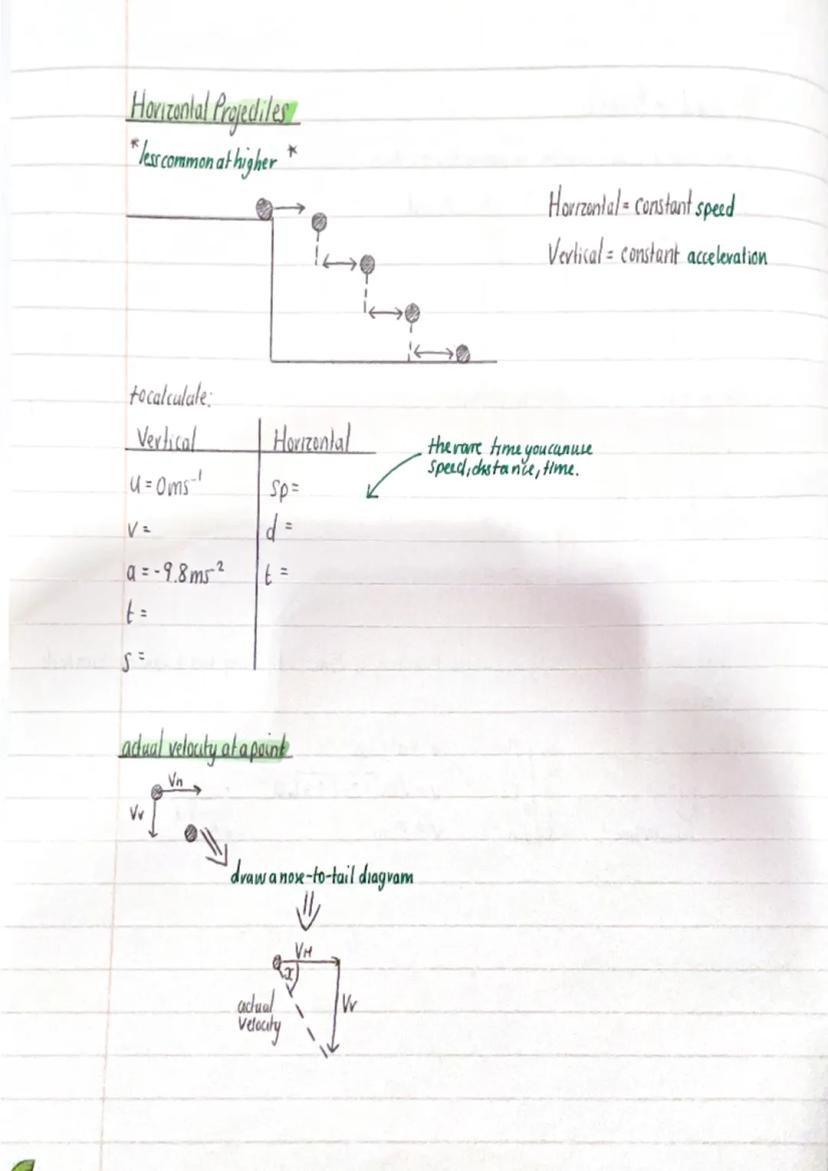 Horizontal Projectiles
*less common at higher *
Horizontal = constant speed
Vertical = constant acceleration
to calculate:
Vertical Horizontal
the rare time you can use
speed, distance, time.
u = 0ms⁻¹ sp =
v = d =
a = -9.8ms⁻² t =
t =
s =
actual velocity at a point
VH
Vv
draw a nose-to-tail diagram
VH
x
actual
velocity
Vv